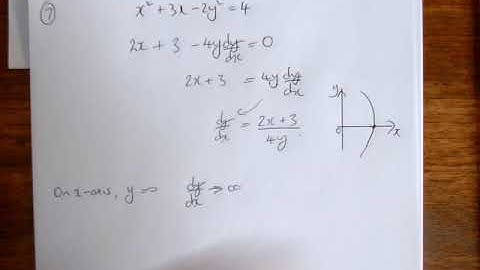 7
x² + 3x - 2y² = 4
2x + 3 - 4y dy/dx = 0
2x + 3 = 4y dy/dx
dy/dx = (2x + 3)/4y
y
0
x
On x-axis, y = 0 dy/dx → ∞